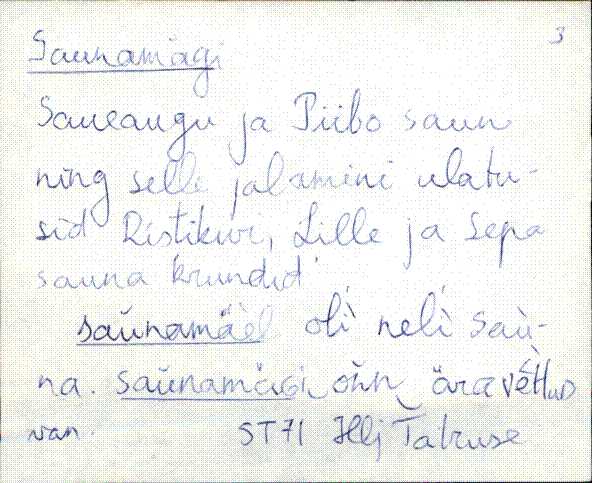 3
Saunamägi
Saueaugu ja Piibo saun
ning selle jalamini ulatu-
sid Ristikivi, Lille ja Sepa
sauna krundid
saùnamäèl olì nelì saù-
na. saùnamägi, òñn äravèttud
ST71 Hlj Tatruse